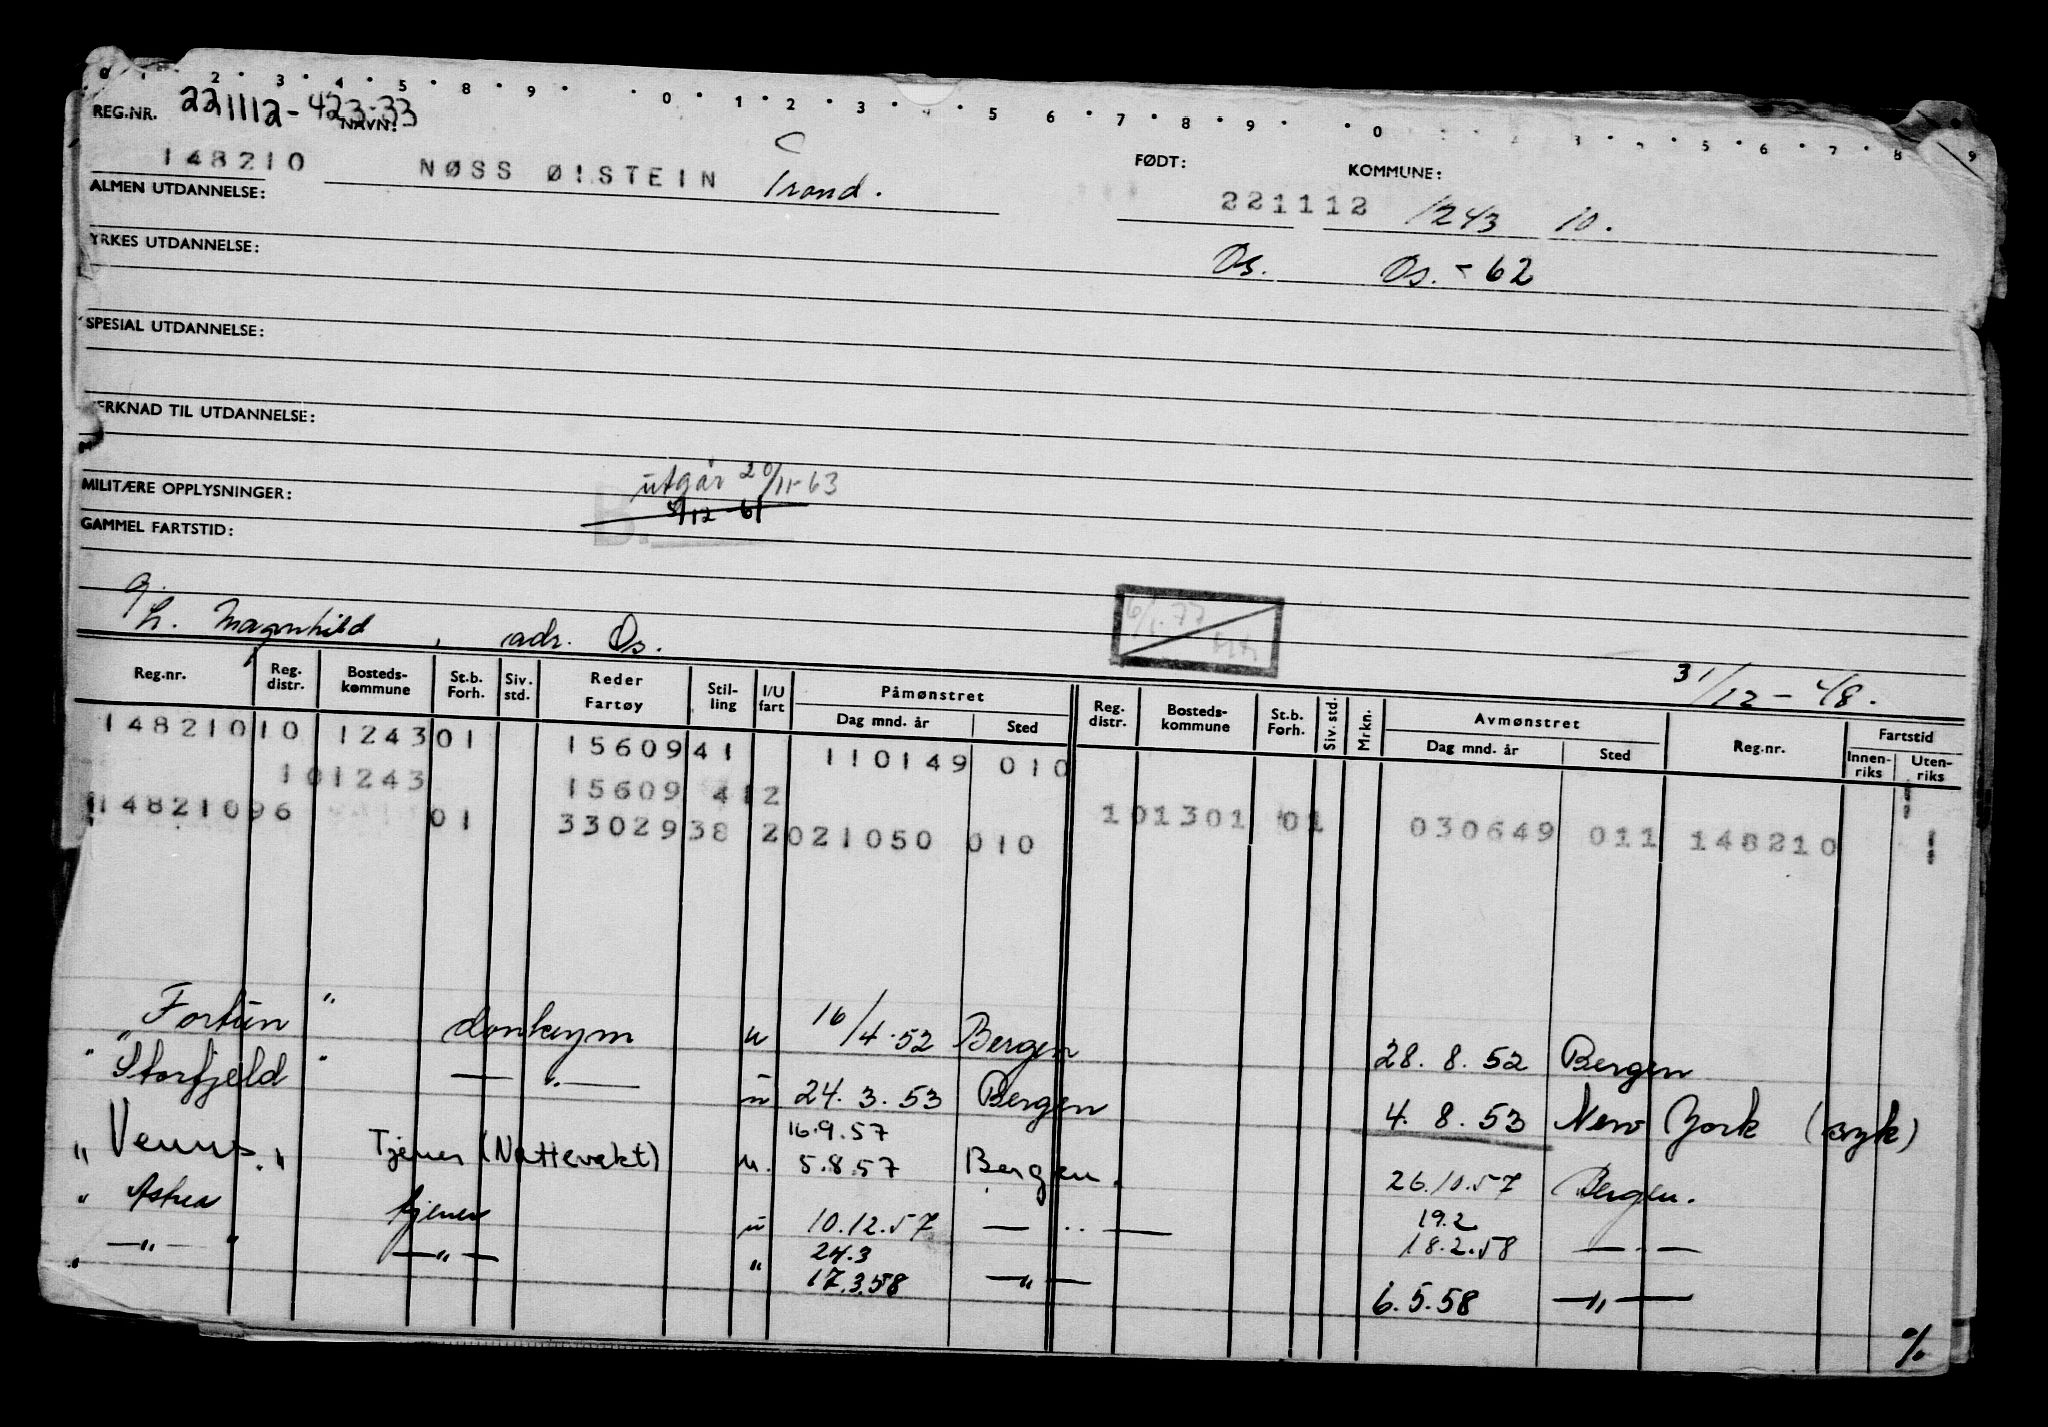 0 1 2 3 4 5 8 9 0 1 2 3 4 5 6 7 8 9 0 3 5 6 7 8 9
REG.NR. 221112-423-33
NAVN:
148210 NØSS ØISTEIN Trond.
FØDT: KOMMUNE:
221112 1243 10.
ALMEN UTDANNELSE:
Os. Os. - 62
YRKES UTDANNELSE:
SPESIAL UTDANNELSE:
MERKNAD TIL UTDANNELSE:
MILITÆRE OPPLYSNINGER: utgår 20/11-63
B. 5/12-61
GAMMEL FARTSTID:
6/1.77
g. h. Magnhild, adr. Os.
31/12-48.
Reg.nr. Reg. distr. Bosteds-kommune St.b. Forh. Siv. std. Reder Fartøy Stil-ling I/U fart Påmønstret Dag mnd. år Sted Reg. distr. Bosteds-kommune St.b. Forh. Siv. std. Mrkn. Avmønstret Dag mnd. år Sted Reg.nr. Fartstid Innen-riks Uten-riks
148210 10 1243 01 15609 41 110149 010
101243 15609 412
148210 96 01 33029 38 2 021050 010 101301 01 030649 011 148210
"Fortun" donkeym u 16/4.52 Bergen 28.8.52 Bergen
"Storfjeld" — " — u 24.3.53 Bergen 4.8.53 New York (syk)
16.9.57
"Venus." Tjener (Nattevakt) u. 5.8.57 Bergen. 26.10.57 Bergen.
"Astrea" tjener u 10.12.57 — " — 19.2
18.2.58 — " —
24.3
" — " — " — " — " 17.3.58 — " — 6.5.58 — " —
%